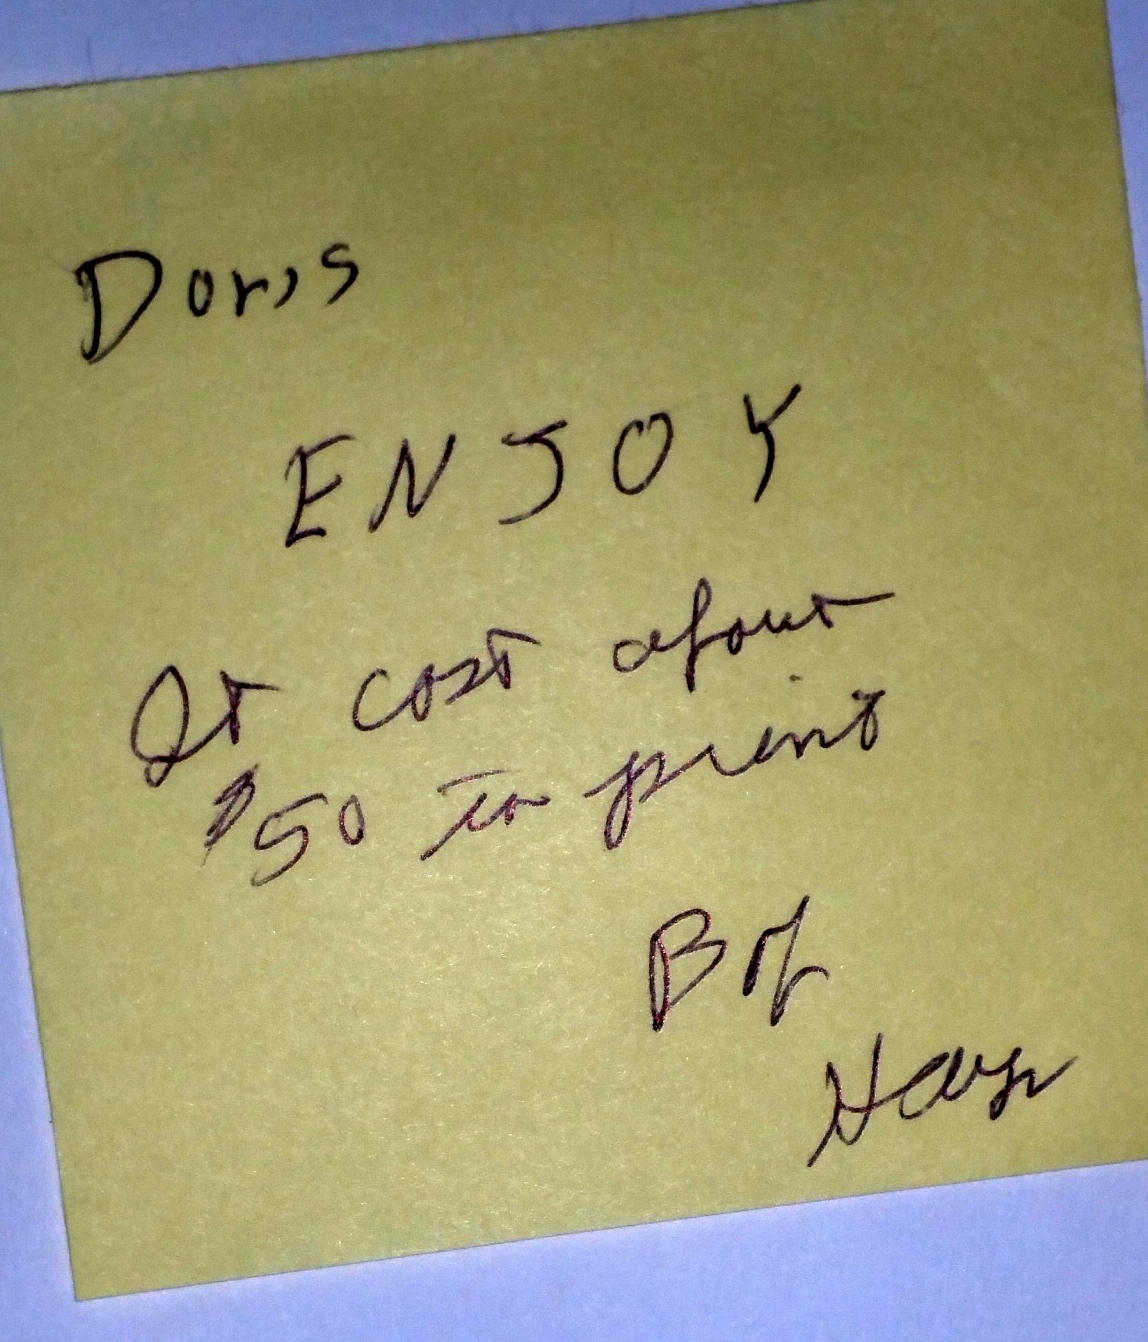 Doris
ENJOY
It cost about
$50 to print